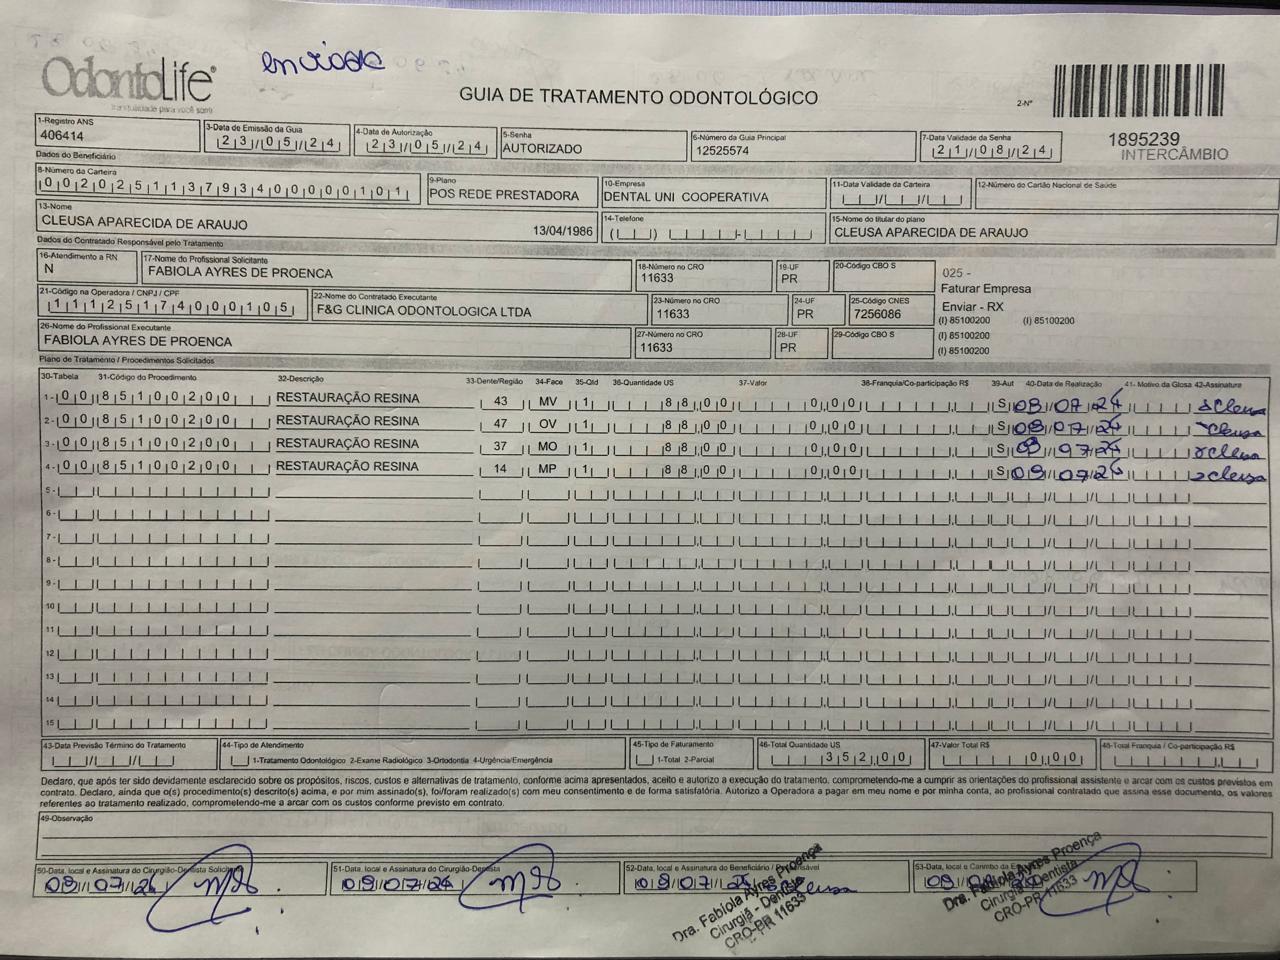 enviada
OdontoLife®
tranquilidade para você sorrir
GUIA DE TRATAMENTO ODONTOLÓGICO
2-Nº
1895239
INTERCÂMBIO
1-Registro ANS
406414
3-Data de Emissão da Guia
23/05/24
4-Data de Autorização
23/05/24
5-Senha
AUTORIZADO
6-Número da Guia Principal
12525574
7-Data Validade da Senha
21/08/24
Dados do Beneficiário
8-Número da Carteira
002025113793400000101
9-Plano
POS REDE PRESTADORA
10-Empresa
DENTAL UNI COOPERATIVA
11-Data Validade da Carteira
12-Número do Cartão Nacional de Saúde
13-Nome
CLEUSA APARECIDA DE ARAUJO 13/04/1986
14-Telefone
15-Nome do titular do plano
CLEUSA APARECIDA DE ARAUJO
Dados do Contratado Responsável pelo Tratamento
16-Atendimento a RN
N
17-Nome do Profissional Solicitante
FABIOLA AYRES DE PROENCA
18-Número no CRO
11633
19-UF
PR
20-Código CBO S
025 -
Faturar Empresa
Enviar - RX
(I) 85100200 (I) 85100200
(I) 85100200
(I) 85100200
21-Código na Operadora / CNPJ / CPF
11125174000105
22-Nome do Contratado Executante
F&G CLINICA ODONTOLOGICA LTDA
23-Número no CRO
11633
24-UF
PR
25-Código CNES
7256086
26-Nome do Profissional Executante
FABIOLA AYRES DE PROENCA
27-Número no CRO
11633
28-UF
PR
29-Código CBO S
Plano de Tratamento / Procedimentos Solicitados
30-Tabela 31-Código do Procedimento 32-Descrição 33-Dente/Região 34-Face 35-Qtd 36-Quantidade US 37-Valor 38-Franquia/Co-participação R$ 39-Aut 40-Data de Realização 41- Motivo da Glosa 42-Assinatura
1- 00 85100200 RESTAURAÇÃO RESINA 43 MV 1 88,00 0,00 S 09/07/24 Cleusa
2- 00 85100200 RESTAURAÇÃO RESINA 47 OV 1 88,00 0,00 S 09/07/24 Cleusa
3- 00 85100200 RESTAURAÇÃO RESINA 37 MO 1 88,00 0,00 S 09/07/24 Cleusa
4- 00 85100200 RESTAURAÇÃO RESINA 14 MP 1 88,00 0,00 S 09/07/24 Cleusa
5-
6-
7-
8-
9-
10
11
12
13
14
15
43-Data Previsão Término do Tratamento
44-Tipo de Atendimento
1-Tratamento Odontológico 2-Exame Radiológico 3-Ortodontia 4-Urgência/Emergência
45-Tipo de Faturamento
1-Total 2-Parcial
46-Total Quantidade US
352,00
47-Valor Total R$
0,00
48-Total Franquia / Co-participação R$
Declaro, que após ter sido devidamente esclarecido sobre os propósitos, riscos, custos e alternativas de tratamento, conforme acima apresentados, aceito e autorizo a execução do tratamento, comprometendo-me a cumprir as orientações do profissional assistente e arcar com os custos previstos em
contrato. Declaro, ainda que o(s) procedimento(s) descrito(s) acima, e por mim assinado(s), foi/foram realizado(s) com meu consentimento e de forma satisfatória. Autorizo a Operadora a pagar em meu nome e por minha conta, ao profissional contratado que assina esse documento, os valores
referentes ao tratamento realizado, comprometendo-me a arcar com os custos conforme previsto em contrato.
49-Observação
50-Data, local e Assinatura do Cirurgião-Dentista Solicitante
09/07/24
51-Data, local e Assinatura do Cirurgião-Dentista
09/07/24
52-Data, local e Assinatura do Beneficiário / Responsável
09/07/24 Cleusa
Dra. Fabiola Ayres Proença
Cirurgiã - Dentista
CRO-PR 11633
53-Data, local e Carimbo da
Dra. Fabiola Ayres Proença
Cirurgiã - Dentista
CRO-PR 11633